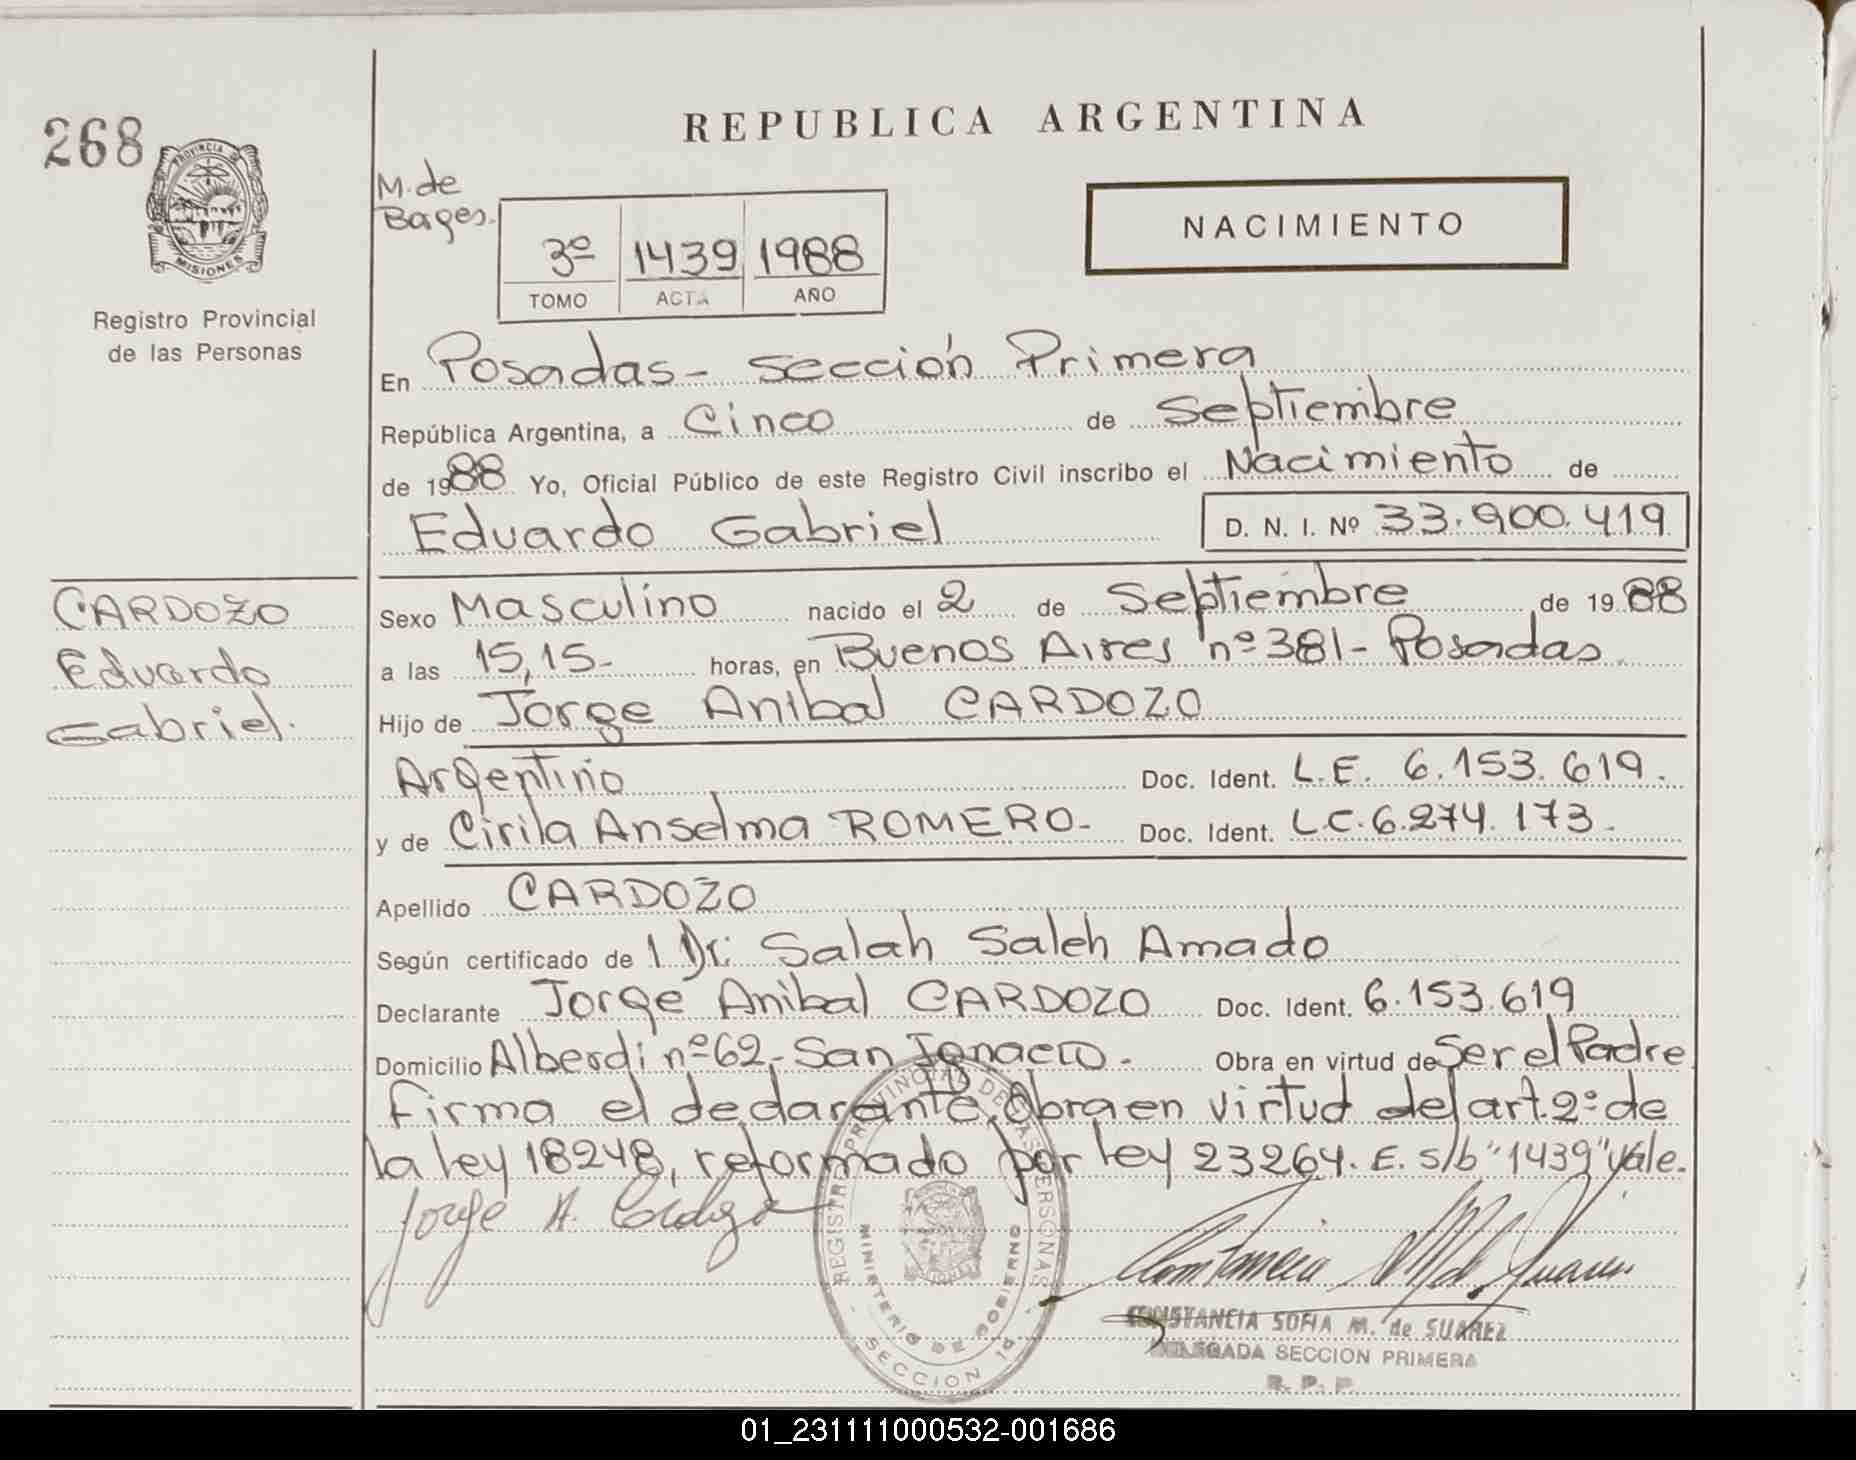 268
PROVINCIA DE
MISIONES
Registro Provincial
de las Personas
REPUBLICA ARGENTINA
M. de
Bages.
NACIMIENTO
3º 1439 1988
TOMO ACTA AÑO
En Posadas - Sección Primera
República Argentina, a Cinco de Septiembre
de 1988 Yo, Oficial Público de este Registro Civil inscribo el Nacimiento de
Eduardo Gabriel D. N. I. Nº 33.900.419
CARDOZO
Eduardo
Gabriel.
Sexo Masculino nacido el 2 de Septiembre de 1988
a las 15,15- horas, en Buenos Aires nº 381 - Posadas
Hijo de Jorge Anibal CARDOZO
Argentino Doc. Ident. L.E. 6.153.619.
y de Cirila Anselma ROMERO- Doc. Ident. L.C. 6.274.173.
Apellido CARDOZO
Según certificado de l Dr: Salah Saleh Amado
Declarante Jorge Anibal CARDOZO Doc. Ident. 6.153.619
Domicilio Alberdi nº 62 - San Ignacio. Obra en virtud de Ser el Padre
Firma el declarante. Obra en virtud del art. 2º de
la ley 18248, reformado por ley 23264. E. s/b "1439" Vale.
Jorge A. Cardozo
REGISTRO PROVINCIAL DE LAS PERSONAS
MINISTERIO DE GOBIERNO
SECCION 1ª
Constancia M de Suarez
CONSTANCIA SOFIA M. de SUAREZ
DELEGADA SECCION PRIMERA
R. P. P.
01_231111000532-001686